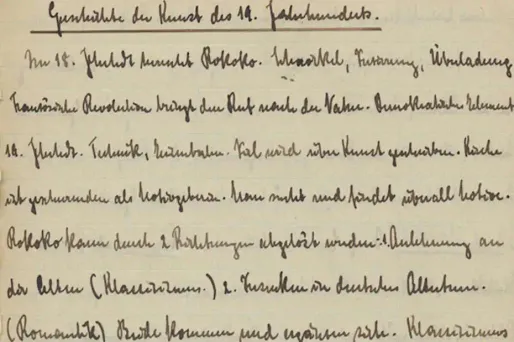 Geschichte der Kunst des 19. Jahrhunderts.
Im 18. Jhrhdt herrscht Rokoko. Schnörkel, Überladung
Französische Revolution bringt den Ruf nach der Natur. Demokratische Element
19. Jhrhdt. Technik, Eisenbahn. Viel wird über Kunst geschrieben. Kirche
ist geschwunden als Motivgeberin. Man sucht und findet überall Motive.
Rokoko kann durch 2 Richtungen abgelöst werden: 1. Anlehnung an
die Alten (Klassizismus.) 2. Versenken in deutsches Altertum.
(Romantik) Beide kommen und ergänzen sich. Klassizismus